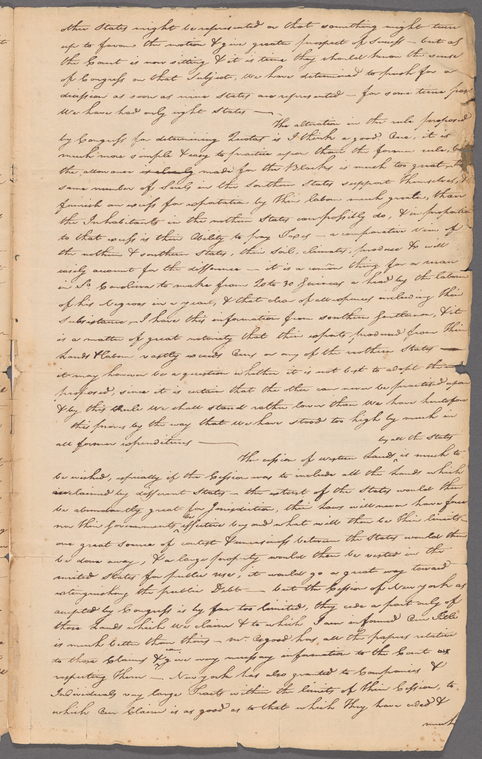 other States might be represented or that something might turn
up to favour the motion & give greater prospect of success — but as
the Court is now sitting & it is time they should know the sense
of Congress on that Subject, We have determined to push for a
decission as soon as nine States are represented — for some time past
We have had only eight States —
The alteration in the rule proposed
by Congress for determining Quotas is I think a good One, it is
much more simple & easy to practice upon than the former rule, but
the allowance made for the Blacks is much too great, the
same number of Souls in the Southern States support themselves, &
furnish an excess for exportation by their labour much greater, than
the Inhabitants in the nothern States can possibly do, & in proportion
to that excess is their Ability to pay Taxes — a comparative View of
the nothern & southern States, their soil, climate, produce & will
easily account for the difference — it is a common thing for a
in So. Carolina to make from 20 to 30 Guineas a head by the labour
of his Negroes in a year, & that clear of all expences including their
subsistence, I have this information from southern Gentlemen, & it
is a matter of great notoriety that their exports, produced from their
hands & labour vastly exceeds Ours or any of the northern States —
it may however be a question whether it is not best to adopt the
proposed, since it is certain that the other can never be practised upon
& by this Rule We shall stand rather lower than We have heretofore
this proves by the way that We have stood too high by much in
all former expenditures —
by all the States
The cession of western Lands is much to
be wished, especially if the Cession was to include all the lands which
are claimed by different States — the extent of the States would then
be abundantly great for Jurisdiction, their laws will never have force
nor their Governments be effective beyond what will then be their limits
one great source of contest & uneasiness between the States would then
be done away, & a large property would then be vested in the
united States for public use, it would go a great way toward
extinguishing the public Debt — but the Cession of New york as
accepted by Congress is by far too limited, they cede a part only of
those Lands which We claim & to which I am of Our Title
is much better than theirs — Mr. Osgood has all the papers relative
to those Claims & can give very necessary information to the Court
respecting them — New york has also granted to Companies &
Individuals very large Tracts within the limits of their Cession, to
which Our Claim is as good as to that which they have ceded &
much